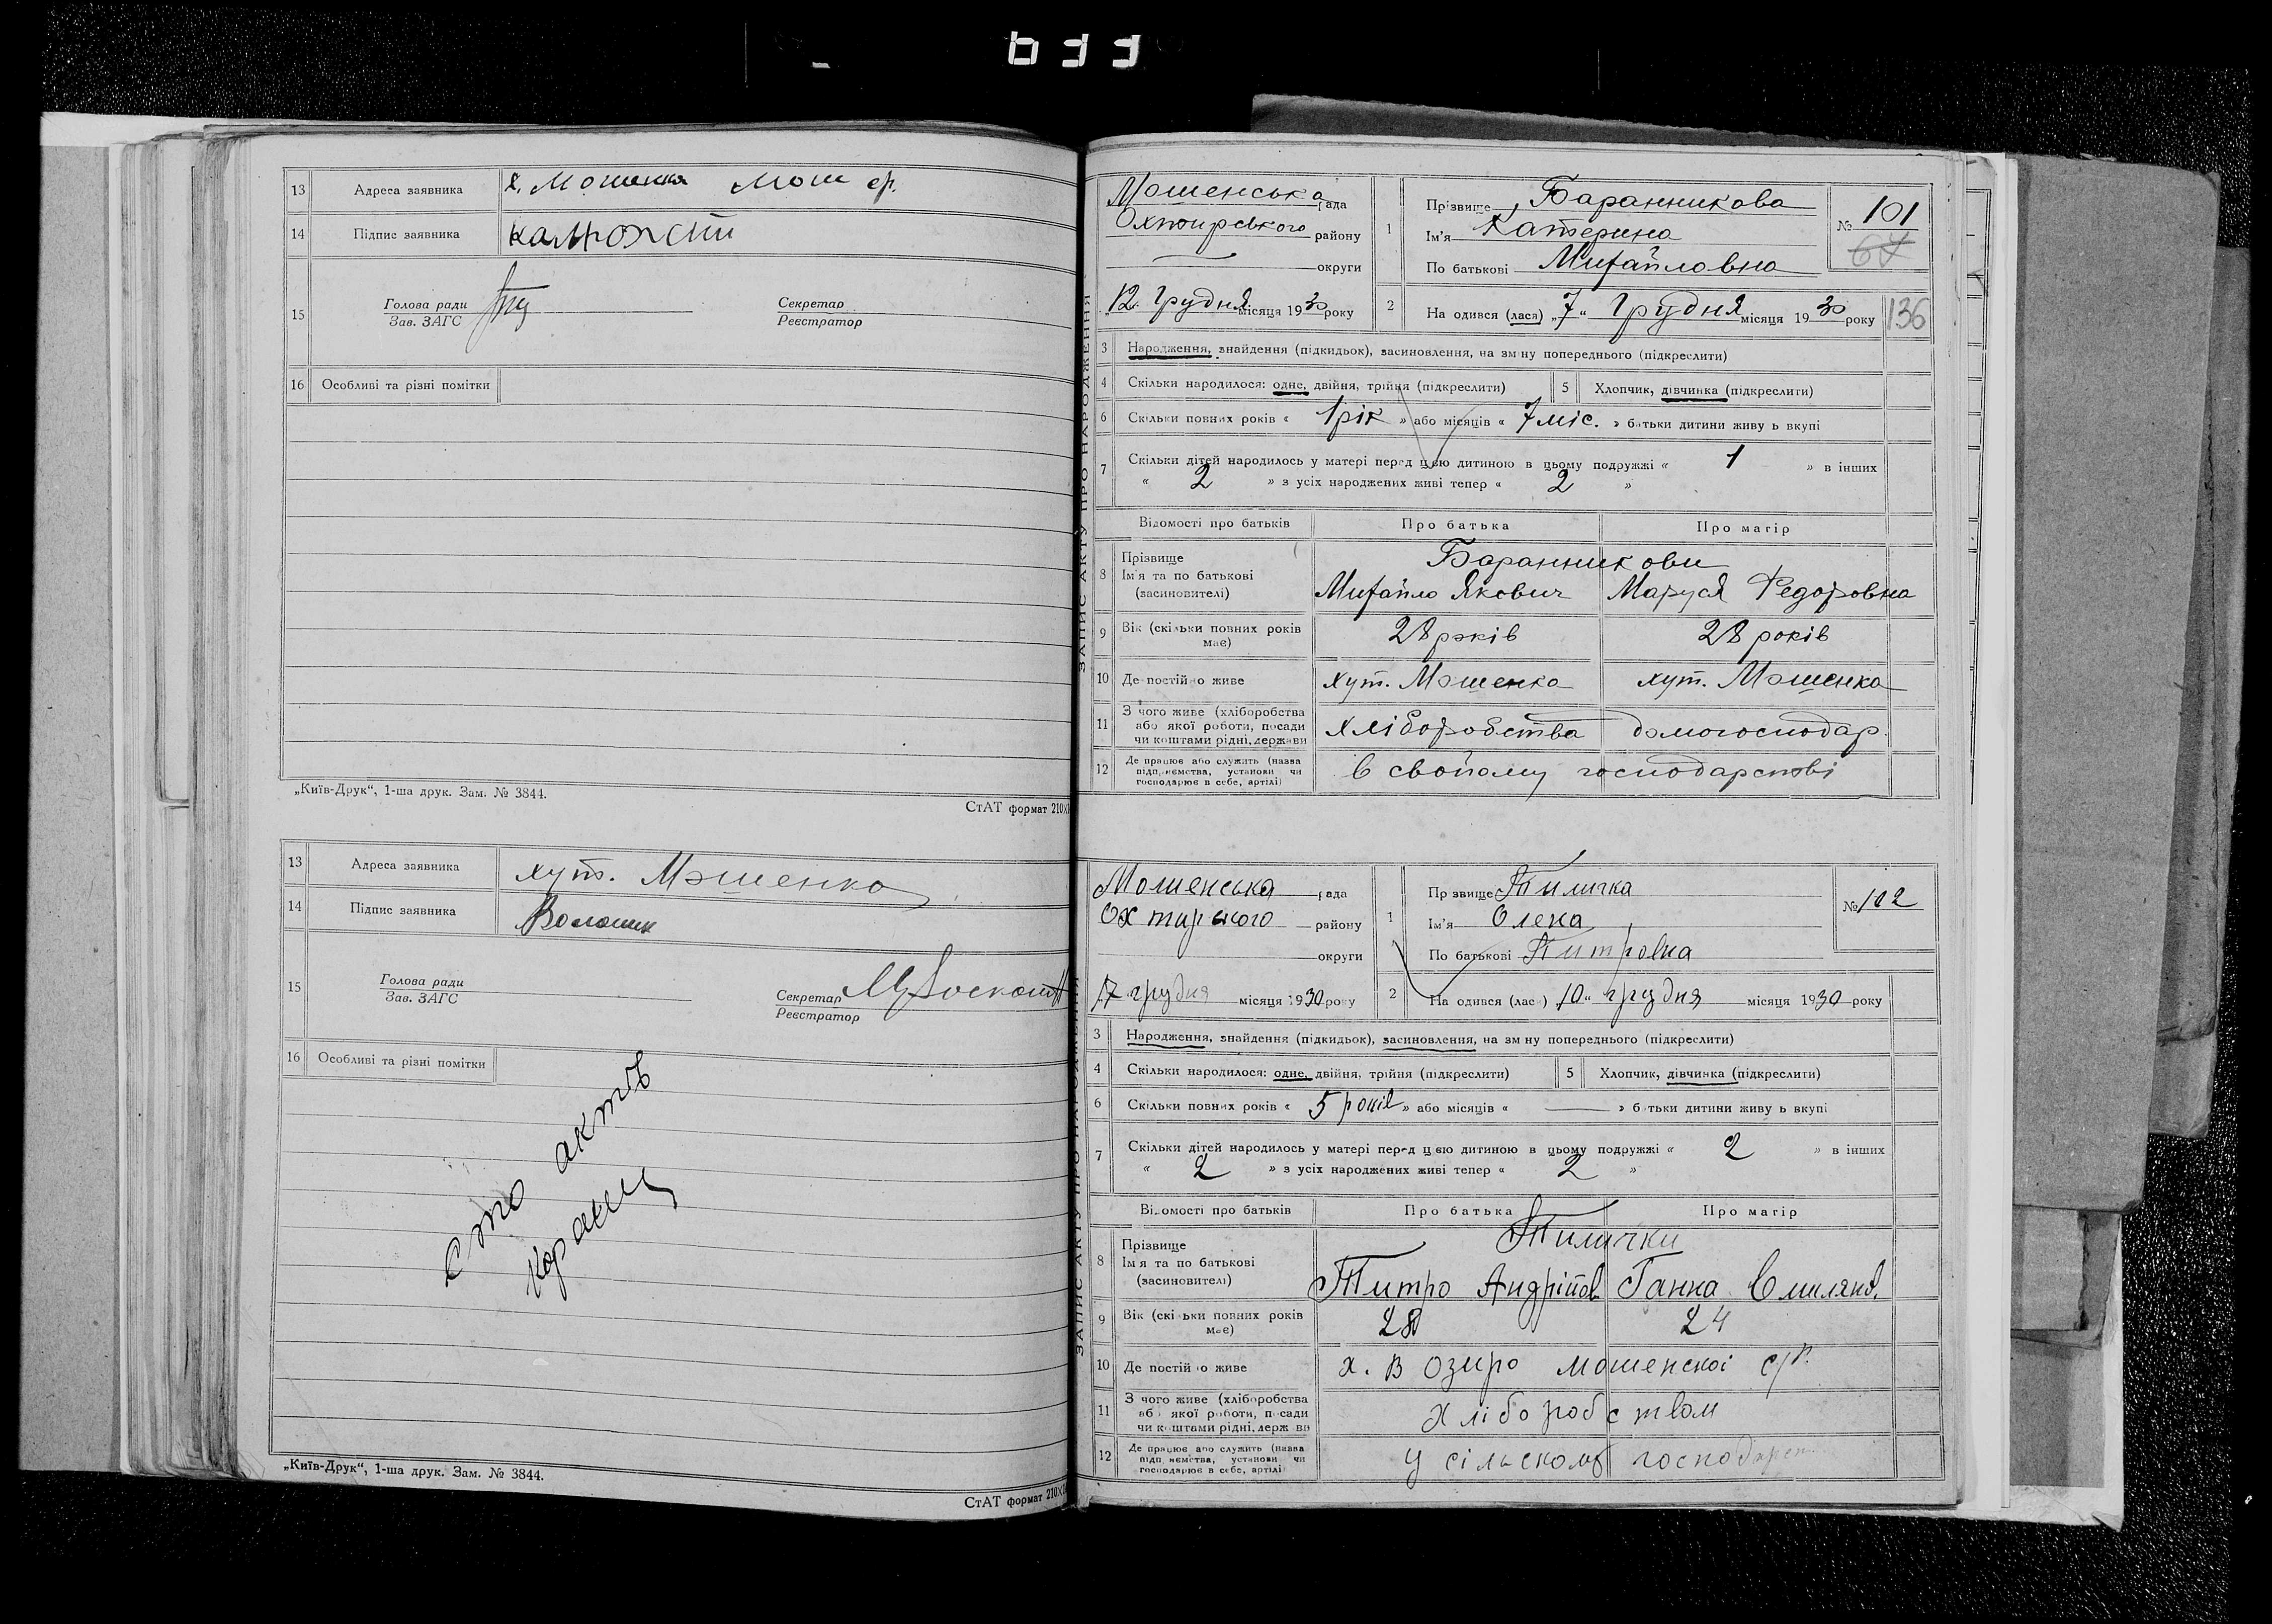 033
13 Адреса заявника х. Мошенка Мош ср.
14 Підпис заявника
15 Голова ради Секретар
Зав. ЗАГС Реєстратор
16 Особливі та різні помітки
„Київ-Друк“, 1-ша друк. Зам. № 3844.
СтАТ формат 210×
13 Адреса заявника хут. Мошенка
14 Підпис заявника Волошин
15 Голова ради Секретар
Зав. ЗАГС Реєстратор
16 Особливі та різні помітки
Сто актів
„Київ-Друк“, 1-ша друк. Зам. № 3844.
СтАТ формат 210×
ЗАПИС АКТУ ПРО НАРОДЖЕННЯ
Мошенська рада
Охтирського району
округи
„12 Грудня місяця 1930 року
1 Прізвище Баранникова
Ім'я Катерина
По батькові Михайловна
№ 101
67
136
2 На одився (лася) „7“ Грудня місяця 1930 року
3 Народження, знайдення (підкидьок), засиновлення, на зм ну попереднього (підкреслити)
4 Скільки народилося: одне, двійня, трійня (підкреслити) 5 Хлопчик, дівчинка (підкреслити)
6 Скільки повних років « 1 рік » або місяців « 7 міс. » батьки дитини живу ь вкупі
7 Скільки дітей народилось у матері перед цією дитиною в цьому подружжі « 1 » в інших
« 2 » з усіх народжених живі тепер « 2 »
Відомості про батьків Про батька Про матір
8 Прізвище Баранникови
Ім'я та по батькові Михайло Якович Маруся Федоровна
(засиновителі)
9 Вік (скільки повних років має) 28 років 28 років
10 Де постій о живе хут. Мошенка хут. Мошенка
11 З чого живе (хліборобства або якої роботи, посади чи коштами рідні, держави хліборобства домогосподар.
12 Де працює або служить (назва підп иємства, установи чи господарює в себе, артілі) в свойому господарстві
ЗАПИС АКТУ ПРО НАРОДЖЕННЯ
Мошенська рада
Охтирского району
округи
17 грудня місяця 1930 року
1 Пр звище Пиличка
Ім'я Олена
По батькові Питровна
№ 102
2 На одився (лас ) 10“ грудня місяця 1930 року
3 Народження, знайдення (підкидьок), засиновлення, на зм ну попереднього (підкреслити)
4 Скільки народилося: одне, двійня, трійня (підкреслити) 5 Хлопчик, дівчинка (підкреслити)
6 Скільки повних років « 5 років » або місяців « — » б тьки дитини живу ь вкупі
7 Скільки дітей народилось у матері перед цією дитиною в цьому подружжі « 2 » в інших
« 2 » з усіх народжених живі тепер « 2 »
Відомості про батьків Про батька Про матір
8 Прізвище Пилички
Ім'я та по батькові Питро Андрійов Ганна Омилянов.
(засиновителі)
9 Вік (скі ьки повних років має) 28 24
10 Де постій о живе х. В Озиро мошенскої с/р.
11 З чого живе (хліборобства або якої роботи, посади чи коштами рідні, держ ви хліборобством
12 Де працює або служить (назва підп иємства, установи чи господарює в себе, артілі у сільском господарст